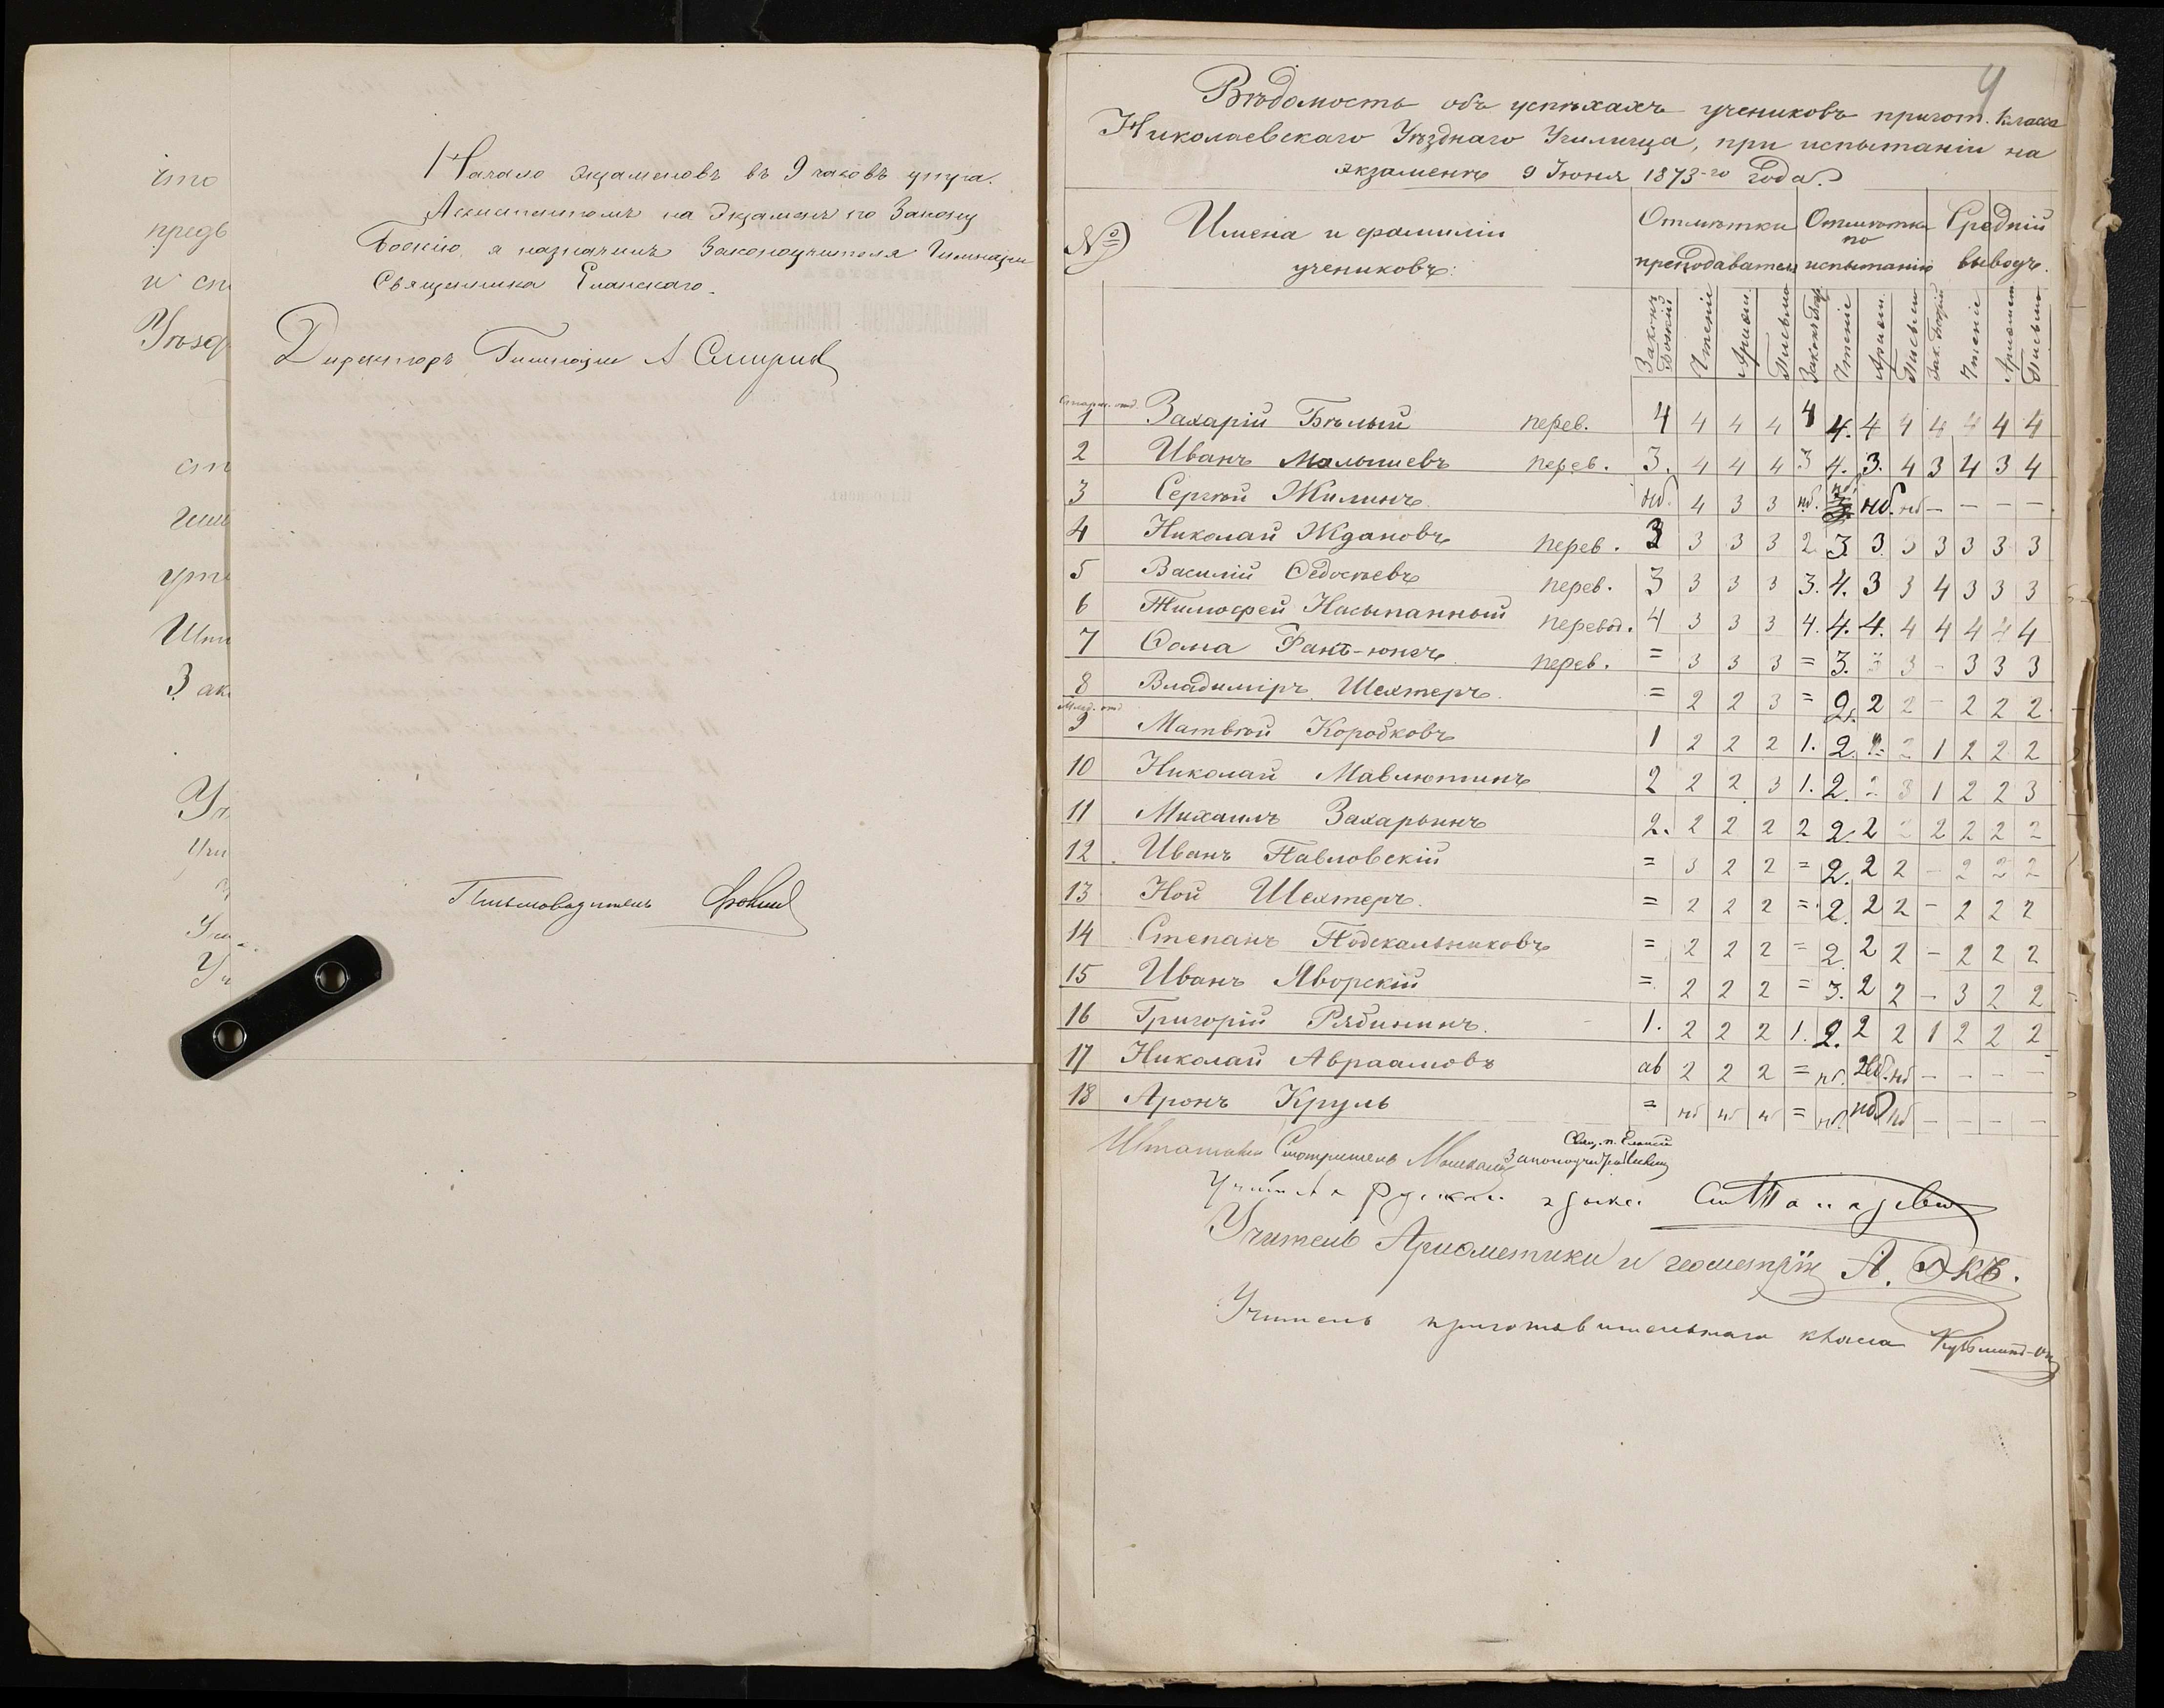 что
предъ
и сп
Уѣзд
ст
гим
утр
Шт
Зак
Начало экзаменовъ въ 9 часовъ утра.
Ассистентомъ на экзаменъ по Закону
Божію я назначилъ Законоучителя Гимназіи
Священника Еланскаго.
Директоръ Гимназіи А Смирнов
Письмоводитель
9
Вѣдомость объ успѣхахъ учениковъ пригот. класса
Николаевскаго Уѣзднаго Училища, при испытаніи на
экзаменѣ 9 Іюня 1873-го года.
№ Имена и фамиліи учениковъ: Отмѣтки преподавателя Отмѣтки по испытанію Средній выводъ.
Законъ Божій Чтеніе Ариѳм. Письмо Законъ Бож. Чтеніе Ариѳм. Письмо Зак. Божій Чтеніе Ариѳмет Письмо
Старш. отд.
1 Захарій Бѣлый перев. 4 4 4 4 4 4. 4 4 4 4 4 4
2 Иванъ Малышевъ перев. 3. 4 4 4 3 4. 3. 4 3 4 3 4
3 Сергѣй Жилинъ нб. 4 3 3 нб. нб. нб. нб — — — —
4 Николай Ждановъ перев. 3 3 3 3 2 3. 3. 3 3 3 3 3
5 Василій Ѳедосѣевъ перев. 3 3 3 3 3. 4. 3 3 4 3 3 3
6 Тимофей Насыпанный перевод. 4 3 3 3 4. 4. 4. 4 4 4 4 4
7 Ѳома Фанъ-юнгъ перев. = 3 3 3 = 3. 3 3 - 3 3 3
8 Владиміръ Шехтеръ. = 2 2 3 = 2. 2 2 - 2 2 2
Млад. отд
9 Матвѣй Коробковъ 1 2 2 2 1. 2. 2 2 1 2 2 2
10 Николай Мавлютинъ 2 2 2 3 1. 2. 2 3 1 2 2 3
11 Михаилъ Захарьинъ 2. 2 2 2 2 2. 2 2 2 2 2 2
12 Иванъ Павловскій = 3 2 2 = 2. 2 2 - 2 2 2
13 Ной Шехтеръ. = 2 2 2 = 2. 2 2 - 2 2 2
14 Степанъ Подскальниковъ = 2 2 2 = 2. 2 2 - 2 2 2
15 Иванъ Яворскій = 2 2 2 = 3. 2 2 - 3 2 2
16 Григорій Рябининъ. 1. 2 2 2 1. 2. 2 2 1 2 2 2
17 Николай Авраамовъ ав 2 2 2 = нб. нб. нб — — — —
18 Аронъ Круль = нб нб нб = нб. нб нб — — — —
Штатный Смотритель Законоучитель
Учитель Русскаго языка
Учитель Ариѳметики и геометріи А. Экъ.
Учитель приготовительнаго класса